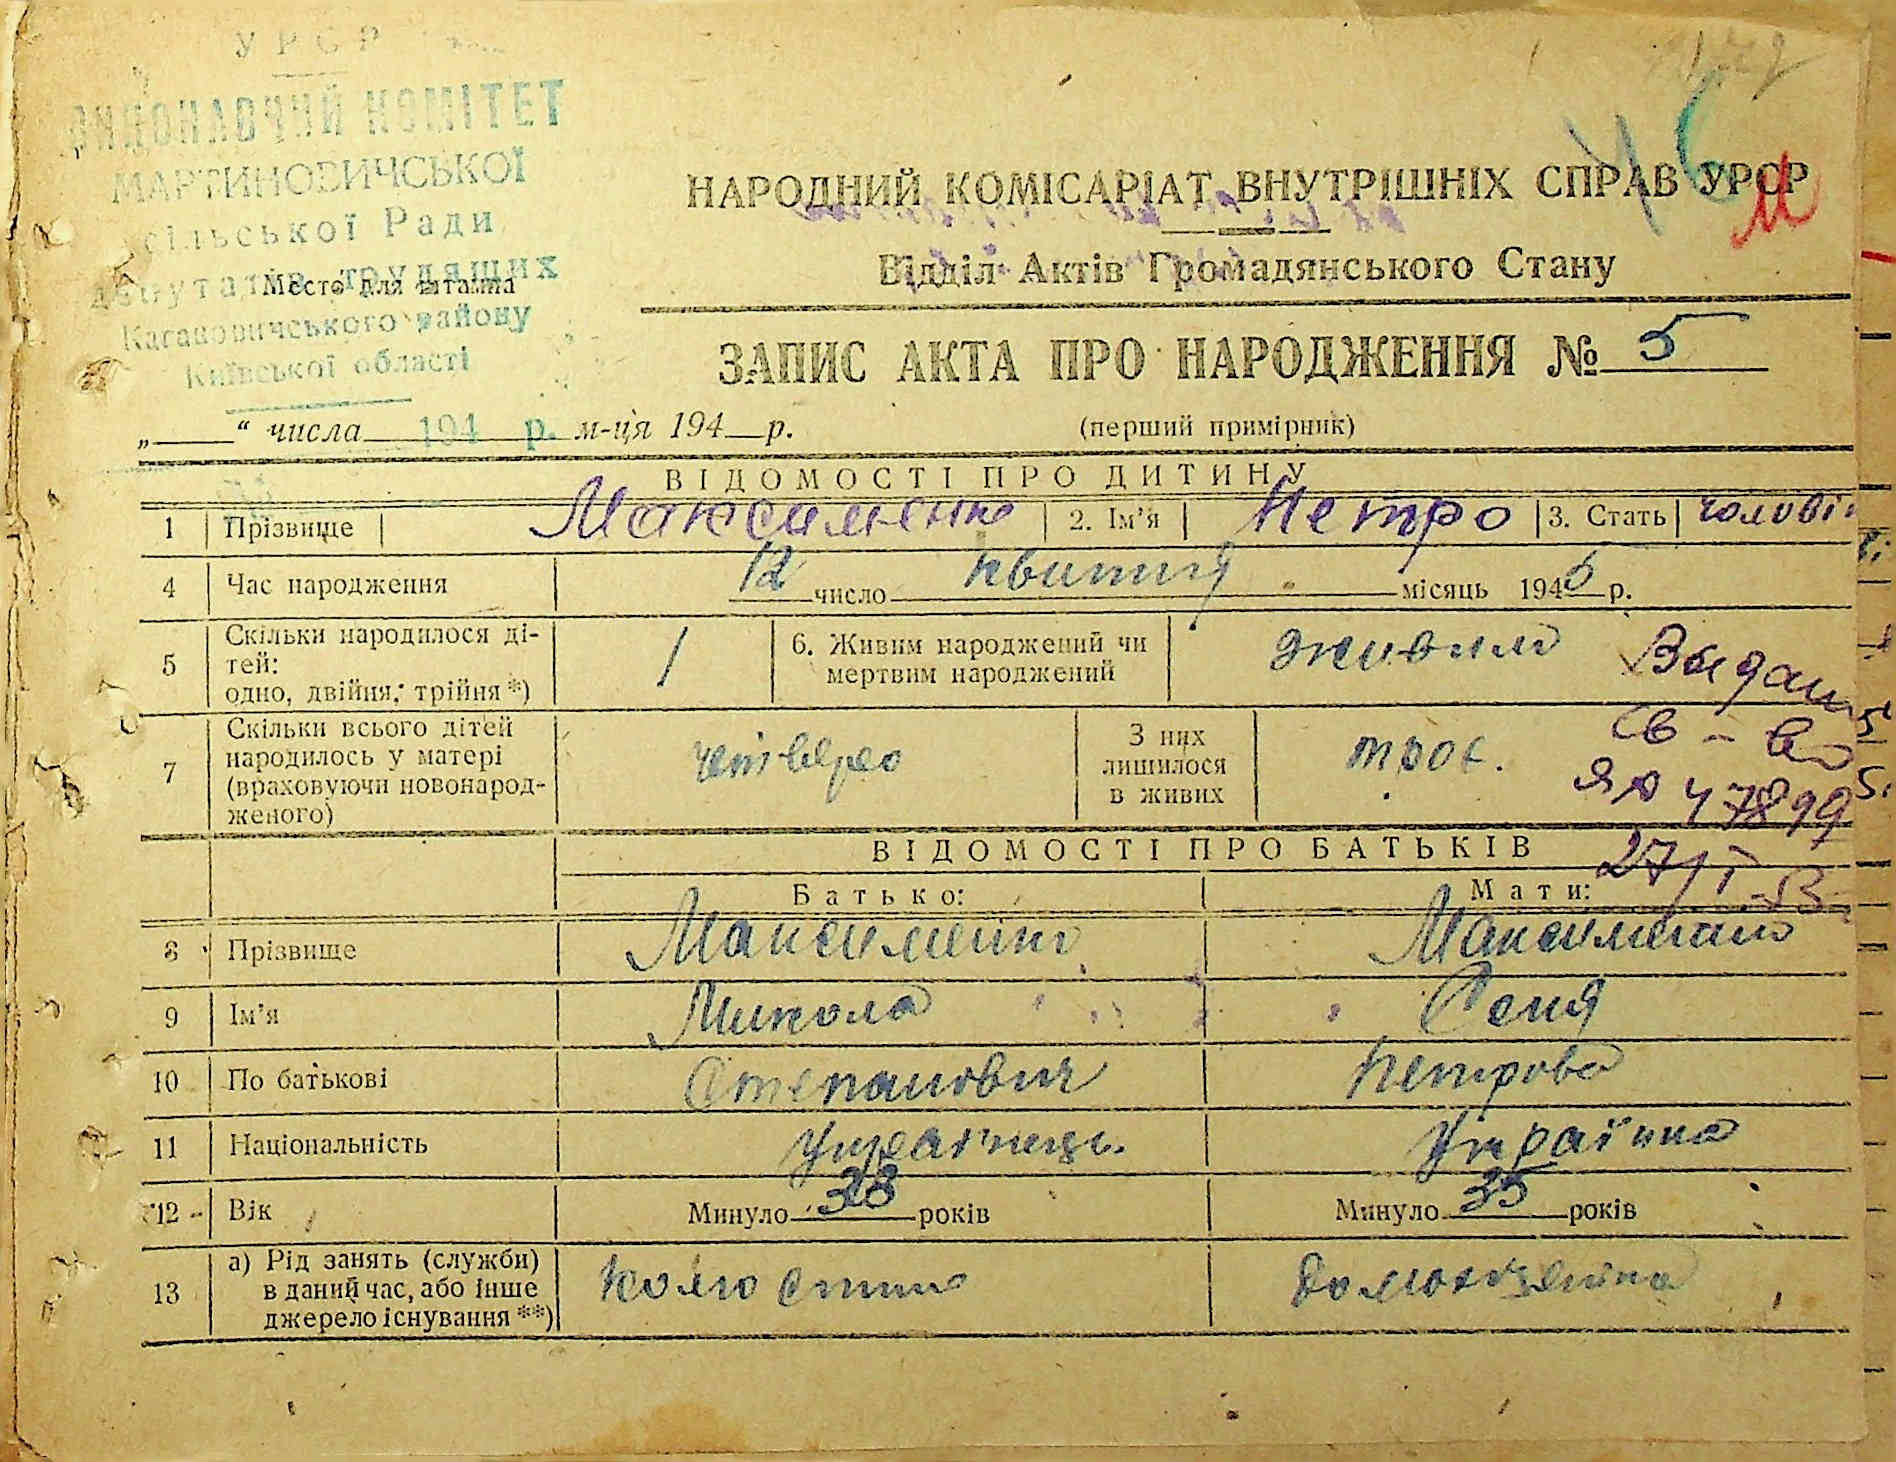 УРСР
ВИКОНАВЧИЙ КОМІТЕТ
МАРТИНОВИЧСЬКОЇ
сільської Ради
депутатів трудящих
Место для штампа
Кагановичського району
Київської області
194 р.
НАРОДНИЙ КОМІСАРІАТ ВНУТРІШНІХ СПРАВ УРСР
Відділ Актів Громадянського Стану
ЗАПИС АКТА ПРО НАРОДЖЕННЯ № 5
„ “ числа м-ця 194 р.
(перший примірник)
ВІДОМОСТІ ПРО ДИТИНУ
1 Прізвище Максименко 2. Ім'я Петро 3. Стать чолові
4 Час народження 12 число квітня місяць 1945 р.
5 Скільки народилося ді-
тей:
одно, двійня, трійня *)
1
6. Живим народжений чи
мертвим народжений
живим
7 Скільки всього дітей
народилось у матері
(враховуючи новонарод-
женого)
четверо
З них
лишилося
в живих
троє.
Выдан
св-во
ЯА 47899
27/І
ВІДОМОСТІ ПРО БАТЬКІВ
Батько: Мати:
8 Прізвище Максименко Максименко
9 Ім'я Микола Соня
10 По батькові Степанович Петрова
11 Національність Українець. Українка
12 Вік Минуло 38 років Минуло 35 років
13 а) Рід занять (служби)
в даний час, або інше
джерело існування **)
колгоспник домохозяйка